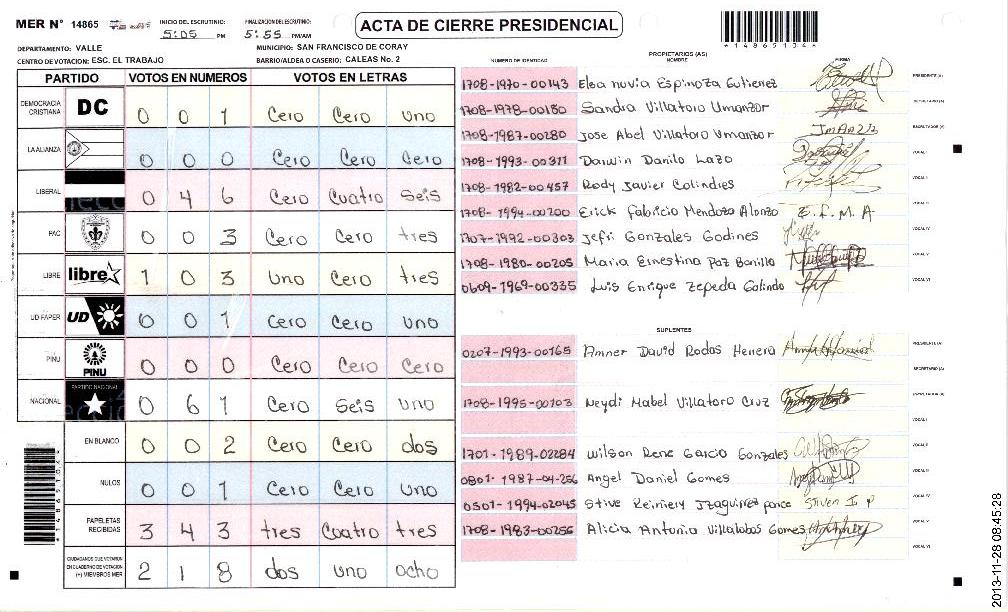 MER N° 14865
INICIO DEL ESCRUTINIO: 5:05 PM
FINALIZACION DEL ESCRUTINIO: 5:55 PM/AM
ACTA DE CIERRE PRESIDENCIAL
*1486510 4*
DEPARTAMENTO: VALLE
MUNICIPIO: SAN FRANCISCO DE CORAY
CENTRO DE VOTACION: ESC. EL TRABAJO
BARRIO/ALDEA O CASERIO: CALEAS No. 2
PARTIDO VOTOS EN NUMEROS VOTOS EN LETRAS
DEMOCRACIA CRISTIANA DC 0 0 1 Cero Cero uno
LA ALIANZA 0 0 0 Cero Cero Cero
LIBERAL 0 4 6 Cero Cuatro Seis
PAC 0 0 3 Cero Cero tres
LIBRE libre 1 0 3 uno Cero tres
UD FAPER UD 0 0 1 Cero Cero uno
PINU PINU 0 0 0 Cero Cero Cero
NACIONAL PARTIDO NACIONAL 0 6 1 Cero Seis uno
EN BLANCO 0 0 2 Cero Cero dos
NULOS 0 0 1 Cero Cero uno
PAPELETAS RECIBIDAS 3 4 3 tres Cuatro tres
CIUDADANOS QUE VOTARON EN CUADERNO DE VOTACION (+) MIEMBROS MER 2 1 8 dos uno ocho
PROPIETARIOS (AS)
NUMERO DE IDENTIDAD NOMBRE FIRMA
1708-1970-00143 Elsa novia Espinoza Gutierrez PRESIDENTE (A)
1708-1978-00180 Sandra Villatoro Umanzor SECRETARIO (A)
1708-1987-00280 Jose Abel Villatoro Umanzor ESCRUTADOR (A)
1708-1993-00311 Darwin Danilo Lazo VOCAL I
1708-1982-00457 Rody Javier Colindres VOCAL II
1708-1994-00200 Erick Fabricio Mendoza Alonzo E.F.M.A VOCAL III
1707-1992-00303 Jefri Gonzales Godines VOCAL IV
1708-1980-00205 Maria Ernestina Paz Bonilla VOCAL V
0609-1969-00335 Luis Enrique Zepeda Galindo VOCAL VI
SUPLENTES
0207-1993-00165 Amner David Rodas Herrera PRESIDENTE (A)
SECRETARIO (A)
1708-1995-00103 Neydi Mabel Villatoro Cruz ESCRUTADOR (A)
VOCAL I
1701-1989-02284 Wilson Rene Garcia Gonzales VOCAL II
0801-1987-04256 Angel Daniel Gomes VOCAL III
0501-1994-02045 Stive Reiniery Izaguirre ponce Stiven I P VOCAL IV
1708-1983-00256 Alicia Antonia Villalobos Gomes VOCAL V
VOCAL VI
2013-11-28 08:45:28